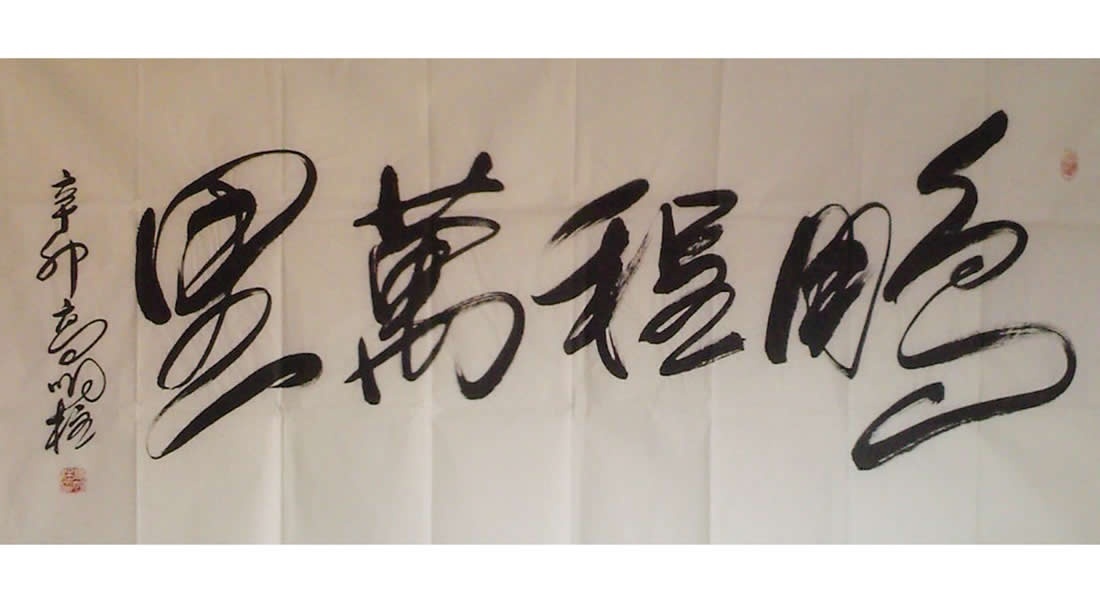 鵬程萬里
辛卯高